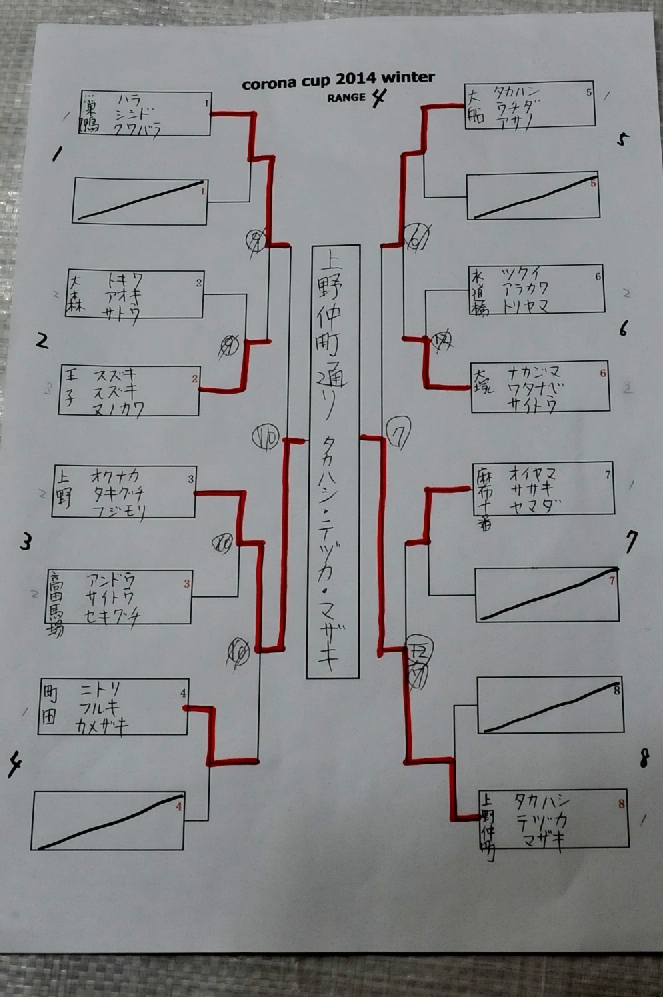 corona cup 2014 winter
RANGE 4
巣鴨
ハラ
シンドウ
クワバラ
1
1
1
大森
トキワ
アオキ
サトウ
2
王子
スズキ
スズキ
2
2
上野
オクナカ
タキグチ
フジモリ
3
3
高田馬場
アンドウ
サイトウ
セキグチ
3
町田
ニトリ
フルキ
カメザキ
4
4
4
上野仲町通り
タカハシ・テヅカ・マザキ
10
7
大船
タカハシ
ウチダ
アサノ
5
5
5
水道橋
ツクイ
アラカワ
トリヤマ
6
6
大塚
ナカジマ
ワタナベ
サイトウ
6
麻布十番
オイヤマ
ササキ
ヤマダ
7
7
7
8
8
上野仲町
タカハシ
テヅカ
マザキ
8